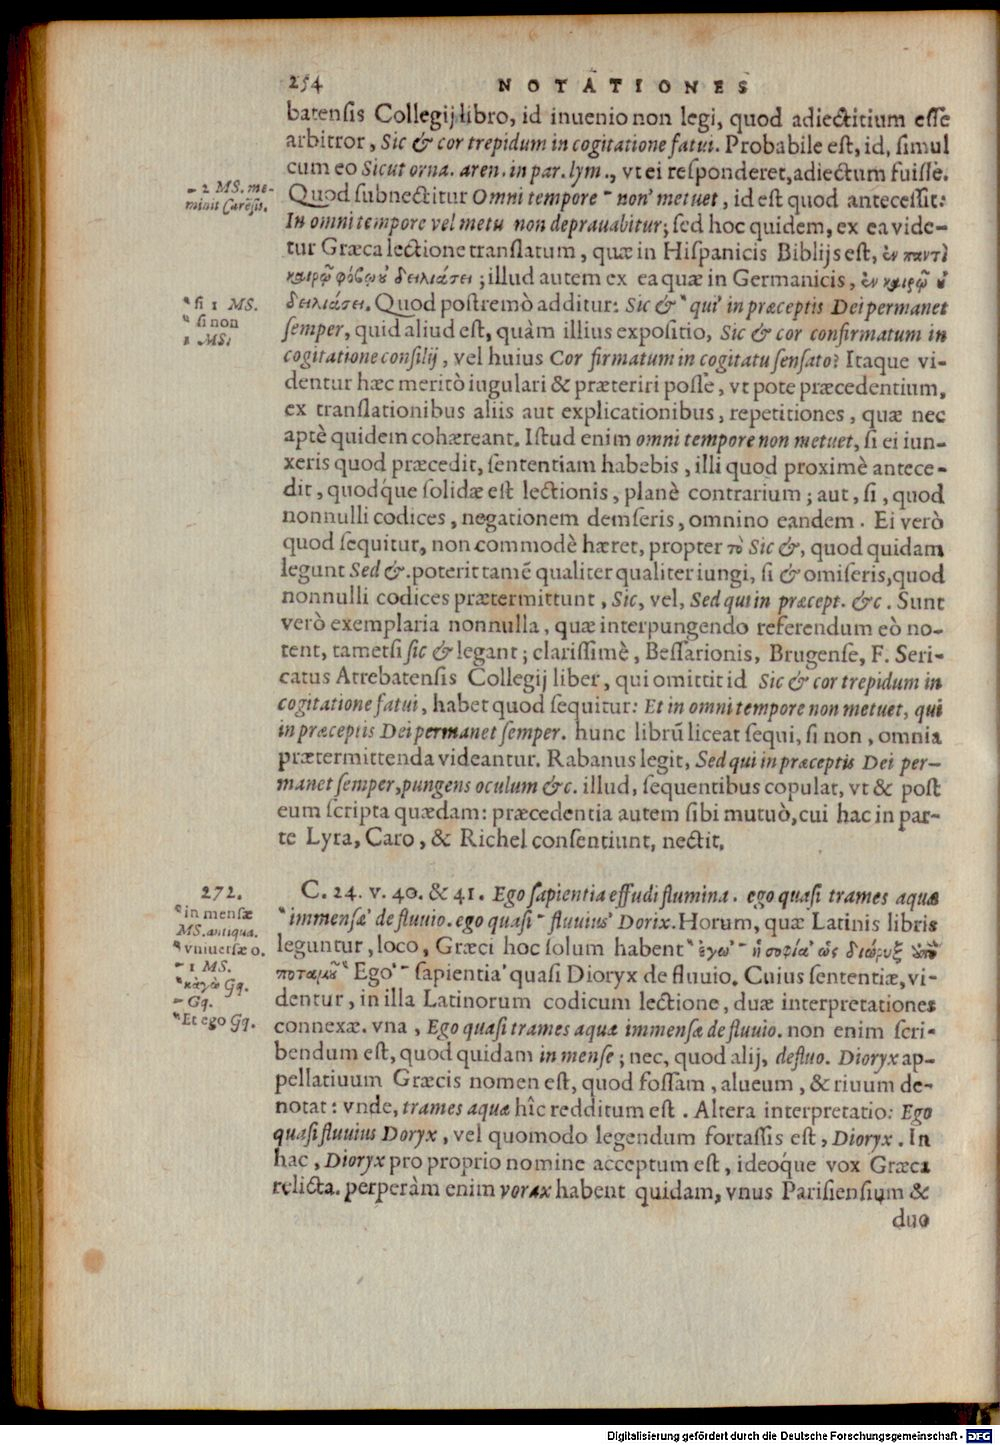 254 NOTATIONES
batensis Collegij libro, id inuenio non legi, quod adiectitium esse
arbitror, Sic & cor trepidum in cogitatione fatui. Probabile est, id, simul
cum eo Sicut orna. aren. in par. lym., vt ei responderet, adiectum fuisse.
Quod subnectitur Omni tempore ⁻ non’ metuet, id est quod antecessit:
- 2 MS. me-
minit Carēsis.
In omni tempore vel metu non deprauabitur; sed hoc quidem, ex ea vide-
tur Græca lectione translatum, quæ in Hispanicis Biblijs est, ἐν παντὶ
καιρῷ φόβῳ οὐ δειλιάσει; illud autem ex ea quæ in Germanicis, ἐν καιρῷ οὐ
δειλιάσει. Quod postremò additur: Sic & ‟ qui’ in præceptis Dei permanet
‟ si 1 MS.
‟ si non
1 MS:
semper, quid aliud est, quàm illius expositio, Sic & cor confirmatum in
cogitatione consilij, vel huius Cor firmatum in cogitatu sensato? Itaque vi-
dentur hæc meritò iugulari & præteriri posse, vt pote præcedentium,
ex translationibus aliis aut explicationibus, repetitiones, quæ nec
aptè quidem cohæreant. Istud enim omni tempore non metuet, si ei iun-
xeris quod præcedit, sententiam habebis, illi quod proximè antece-
dit, quodq́ue solidæ est lectionis, planè contrarium; aut, si, quod
nonnulli codices, negationem demseris, omnino eandem. Ei verò
quod sequitur, non commodè hæret, propter τὸ Sic &, quod quidam
legunt Sed &. poterit tamē qualiter qualiter iungi, si & omiseris, quod
nonnulli codices prætermittunt, Sic, vel, Sed qui in præcept. &c. Sunt
verò exemplaria nonnulla, quæ interpungendo referendum eò no-
tent, tametsi sic & legant; clarissimè, Bessarionis, Brugense, F. Seri-
catus Atrebatensis Collegij liber, qui omittit id Sic & cor trepidum in
cogitatione fatui, habet quod sequitur: Et in omni tempore non metuet, qui
in præceptis Dei permanet semper. hunc librū liceat sequi, si non, omnia
prætermittenda videantur. Rabanus legit, Sed qui in præceptis Dei per-
manet semper, pungens oculum &c. illud, sequentibus copulat, vt & post
eum scripta quædam: præcedentia autem sibi mutuò, cui hac in par-
te Lyra, Caro, & Richel consentiunt, nectit.
272.
C. 24. v. 40. & 41. Ego sapientia effudi flumina. ego quasi trames aquæ
‟ immensæ’ de fluuio. ego quasi ⁻ fluuius’ Dorix. Horum, quæ Latinis libris
leguntur, loco, Græci hoc solum habent ‟ ἐγὼ’ ⁻ ἡ σοφία’ ὡς διώρυξ ἀπὸ
ποταμοῦ ‟ Ego’ ⁻ sapientia’ quasi Dioryx de fluuio. Cuius sententiæ, vi-
‟ in mensæ
MS. antiqua.
‟ vniuersæ o.
- 1 MS.
‟ κἀγὼ Gq.
- Gq.
‟ Et ego Gq.
dentur, in illa Latinorum codicum lectione, duæ interpretationes
connexæ. vna, Ego quasi trames aquæ immensæ de fluuio. non enim scri-
bendum est, quod quidam in mense; nec, quod alij, defluo. Dioryx ap-
pellatiuum Græcis nomen est, quod fossam, alueum, & riuum de-
notat: vnde, trames aquæ hîc redditum est. Altera interpretatio: Ego
quasi fluuius Doryx, vel quomodo legendum fortassis est, Dioryx. In
hac, Dioryx pro proprio nomine acceptum est, ideoq́ue vox Græca
relicta. perperàm enim vorax habent quidam, vnus Parisiensium &
duo
Digitalisierung gefördert durch die Deutsche Forschungsgemeinschaft - DFG